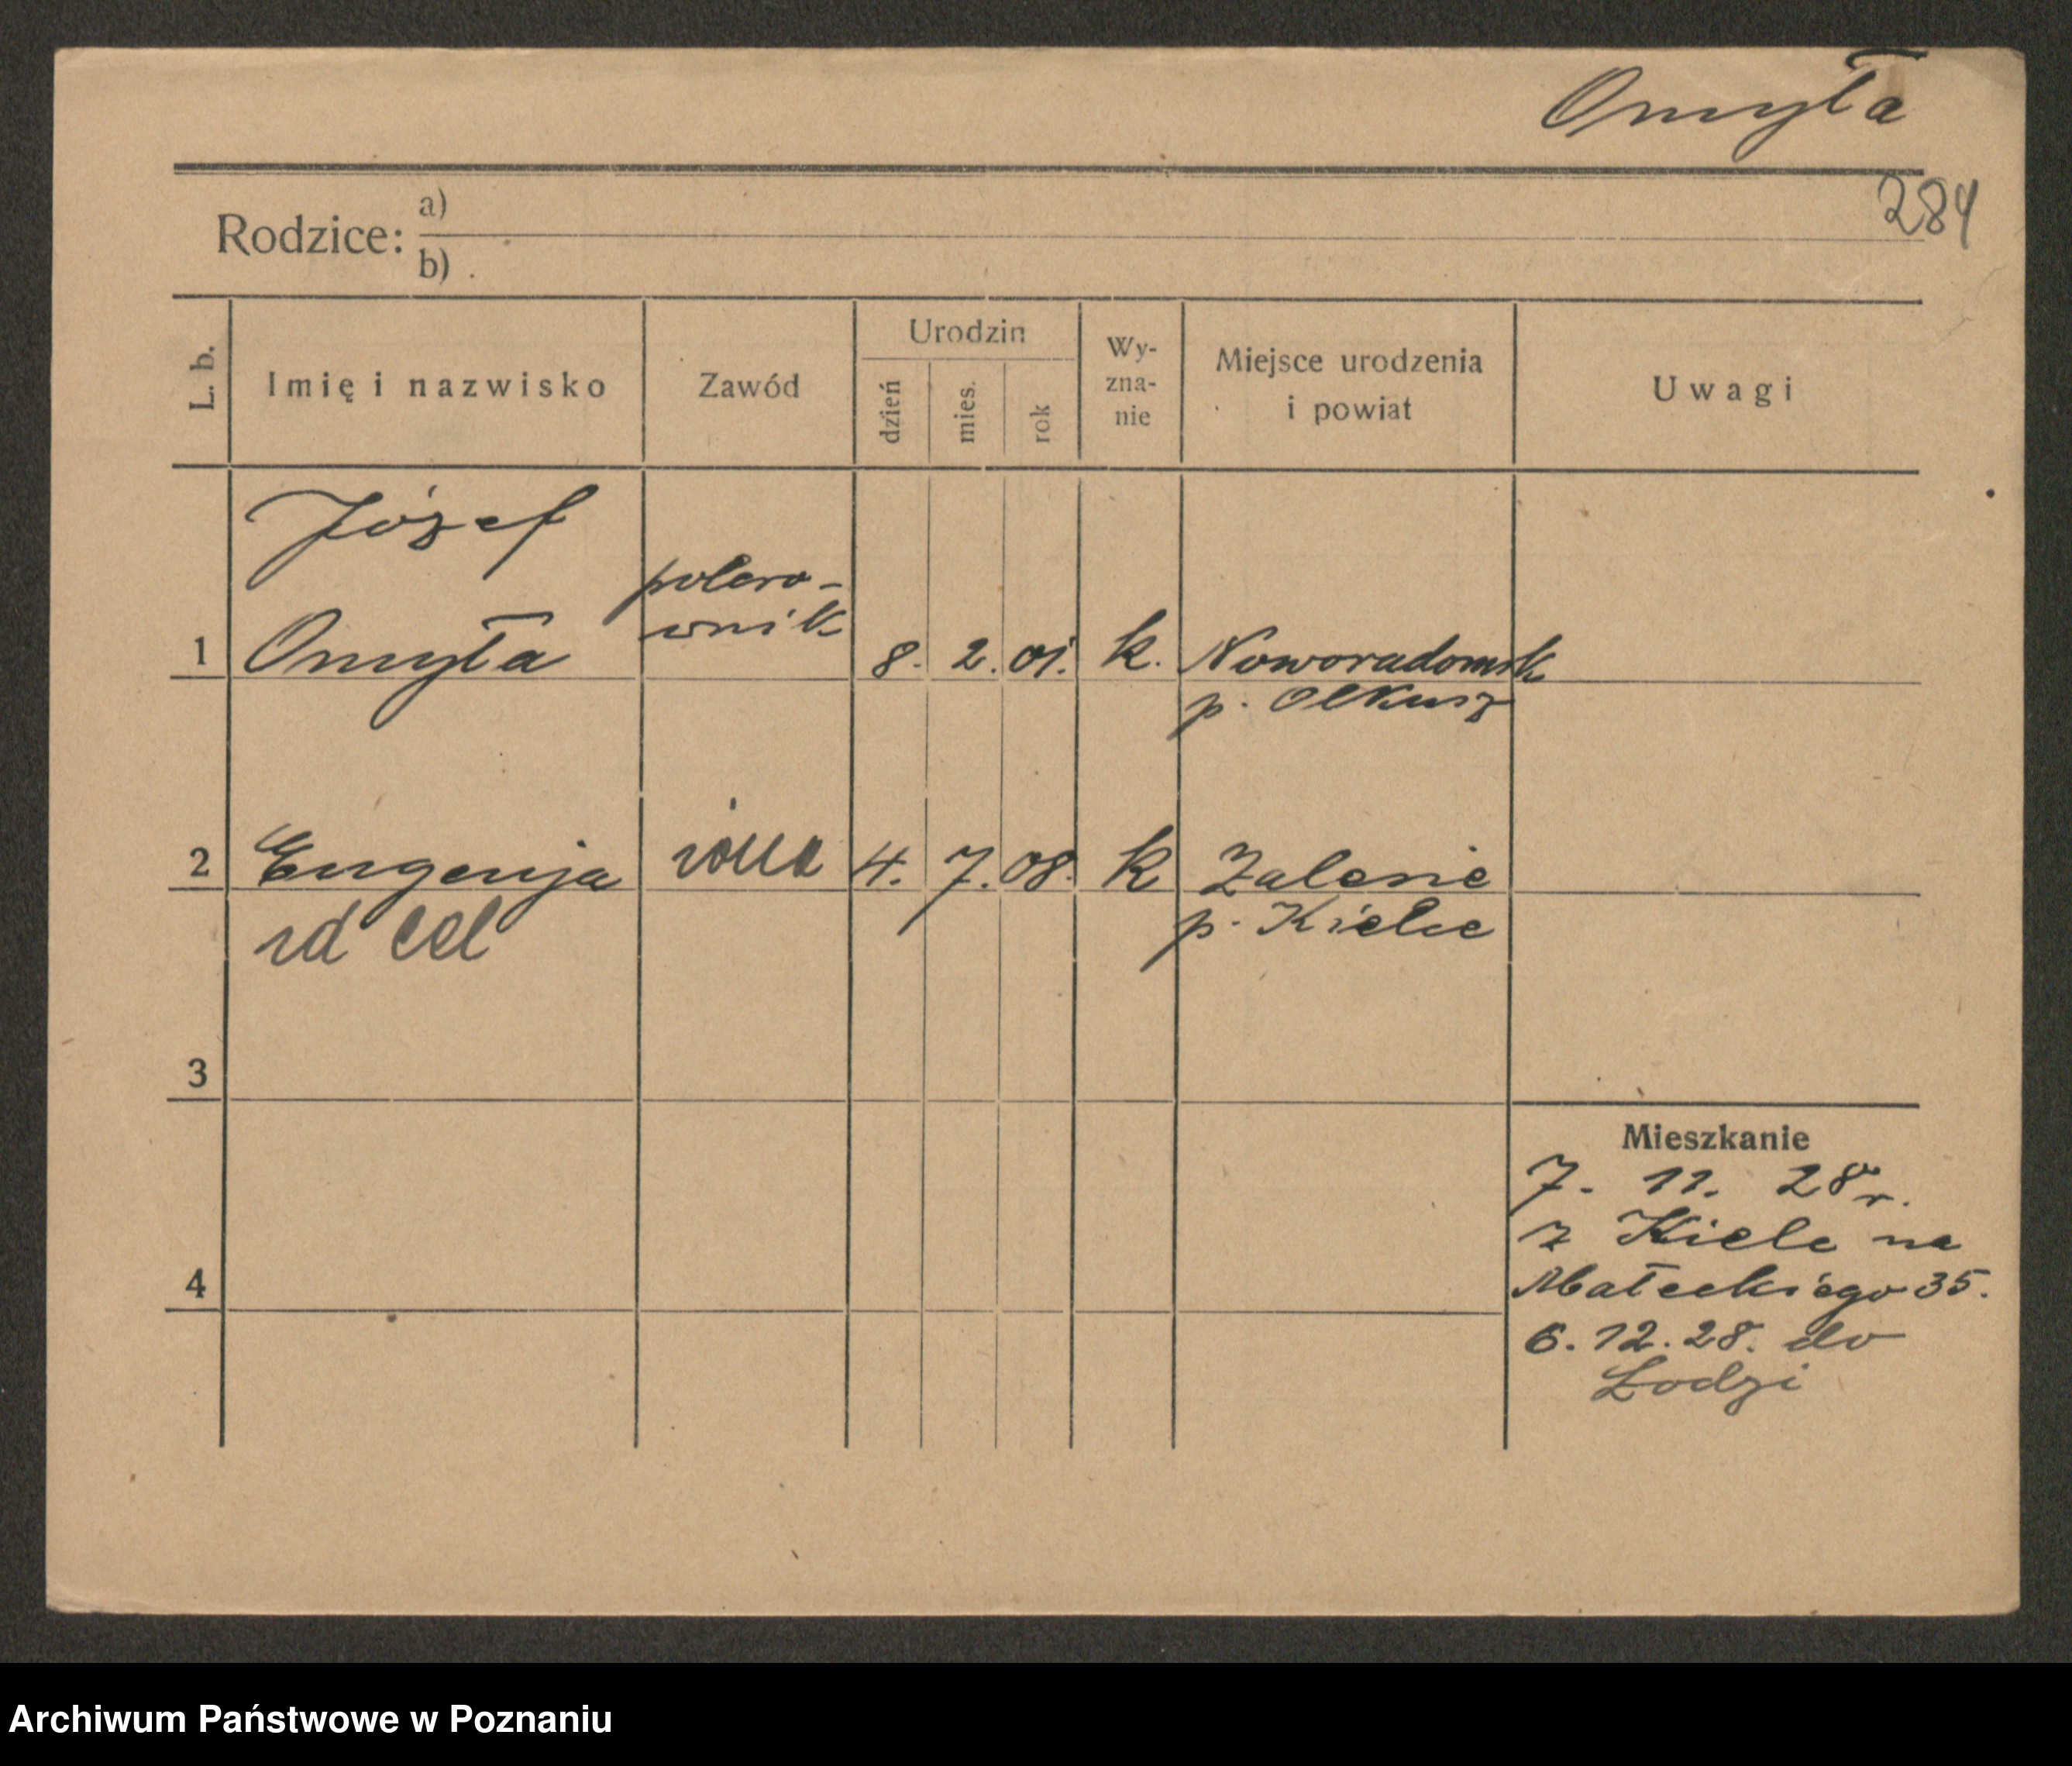 Omyła
284
Rodzice: a)
b)
L. b.
Imię i nazwisko
Zawód
Urodzin
dzień
mies.
rok
Wy-
zna-
nie
Miejsce urodzenia
i powiat
Uwagi
Józef
polero-
wnik
1 Omyła 8. 2. 01. k. Noworadomsk
p. Olkusz
2 Eugenja żona 4. 7. 08. k Zalesie
p. Kielce
3
4
Mieszkanie
7. 11. 28 r.
z Kielc na
Małeckiego 35.
6. 12. 28. do
Łodzi
Archiwum Państwowe w Poznaniu